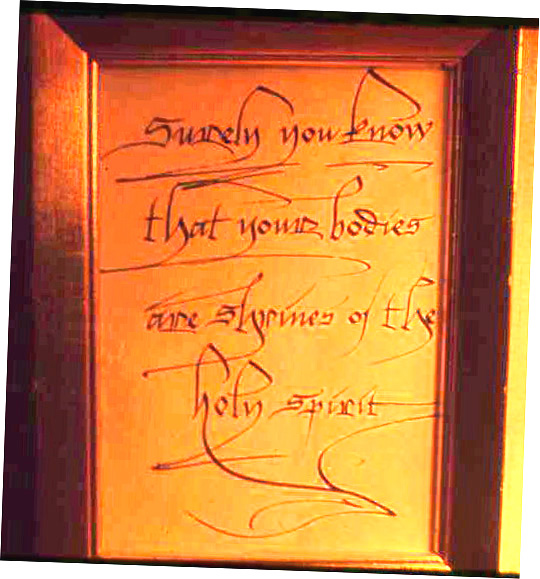 Surely you know
that your bodies
are shrines of the
holy spirit